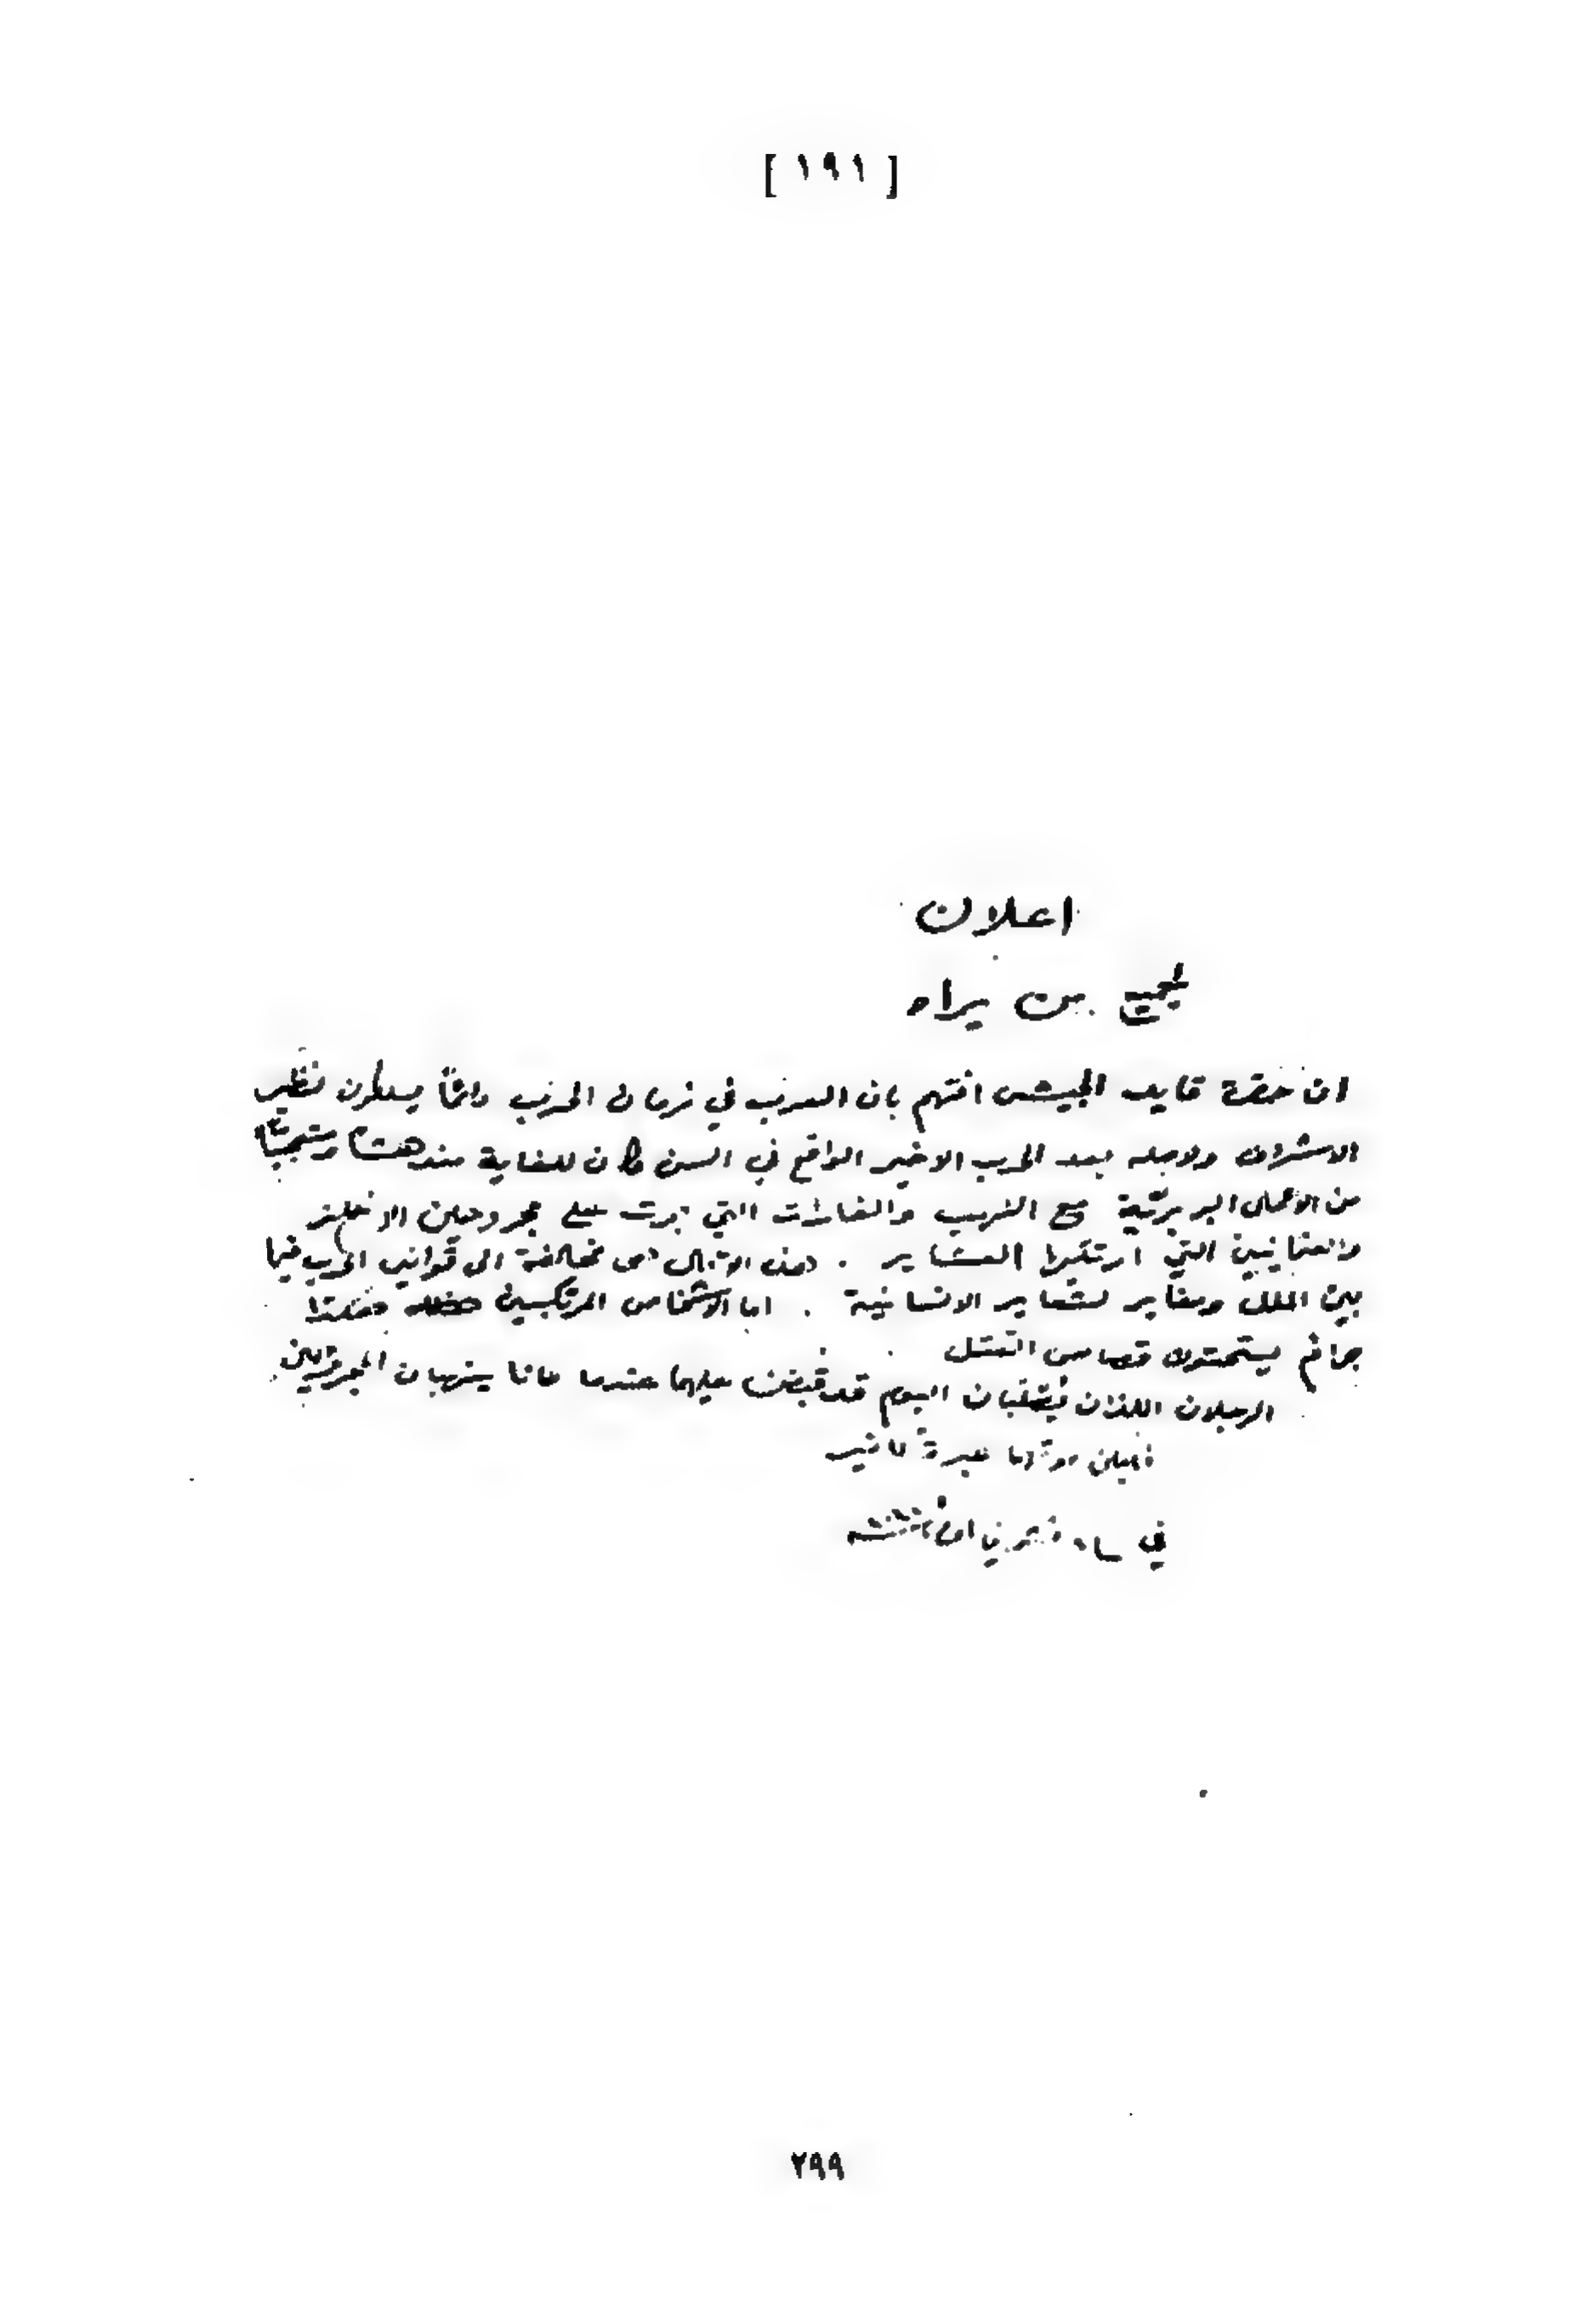 [ ١٩١ ]
اعلان
لجميع من يراه
ان حضرة قايد الجيش افتهم بان العرب في زمان الحرب دائماً يسلكون نظير
الاشراف ولاجله بعد الحرب الاخير الواقع في السن كان للغاية مندهشاً ومتعجباً
من الاعمال البربرية مع النهيب والغارات التي جرت على مجروحين الانكليز
والعثمانيين التي ارتكبها العشاير . الى قوانين الحرب فيما
بين الملل ومغاير لشعاير الانسانية . اما الاشخاص المرتكبين هكذا
جرائم يستحقون قصاص القتل
الرجلان اللذان اليوم قد قبضنا عليهما عندما كانا ينهبان المجروحين
عبرة للغير
في
٢٩٩